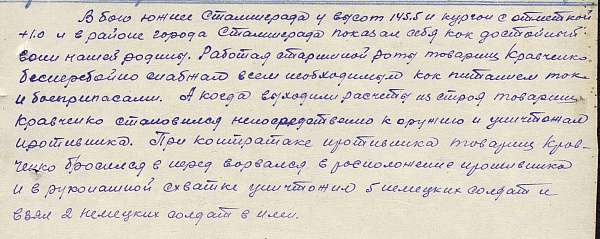 В бою южнее Сталинграда у высот 145.5 и курган с отметкой
+1.0 и в районе города Сталинграда показал себя как достойный
воин нашей родины. Работая старшиной роты товарищ Кравченко
бесперебойно снабжал всем необходимым как питанием так
и боеприпасами. А когда выходили расчеты из строя товарищ
Кравченко становился непосредственно к оружию и уничтожал
противника. При контратаке противника товарищ Крав-
ченко бросился в перед ворвался в расположение противника
и в рукопашной схватке уничтожил 5 немецких солдат и
взял 2 немецких солдат в плен.